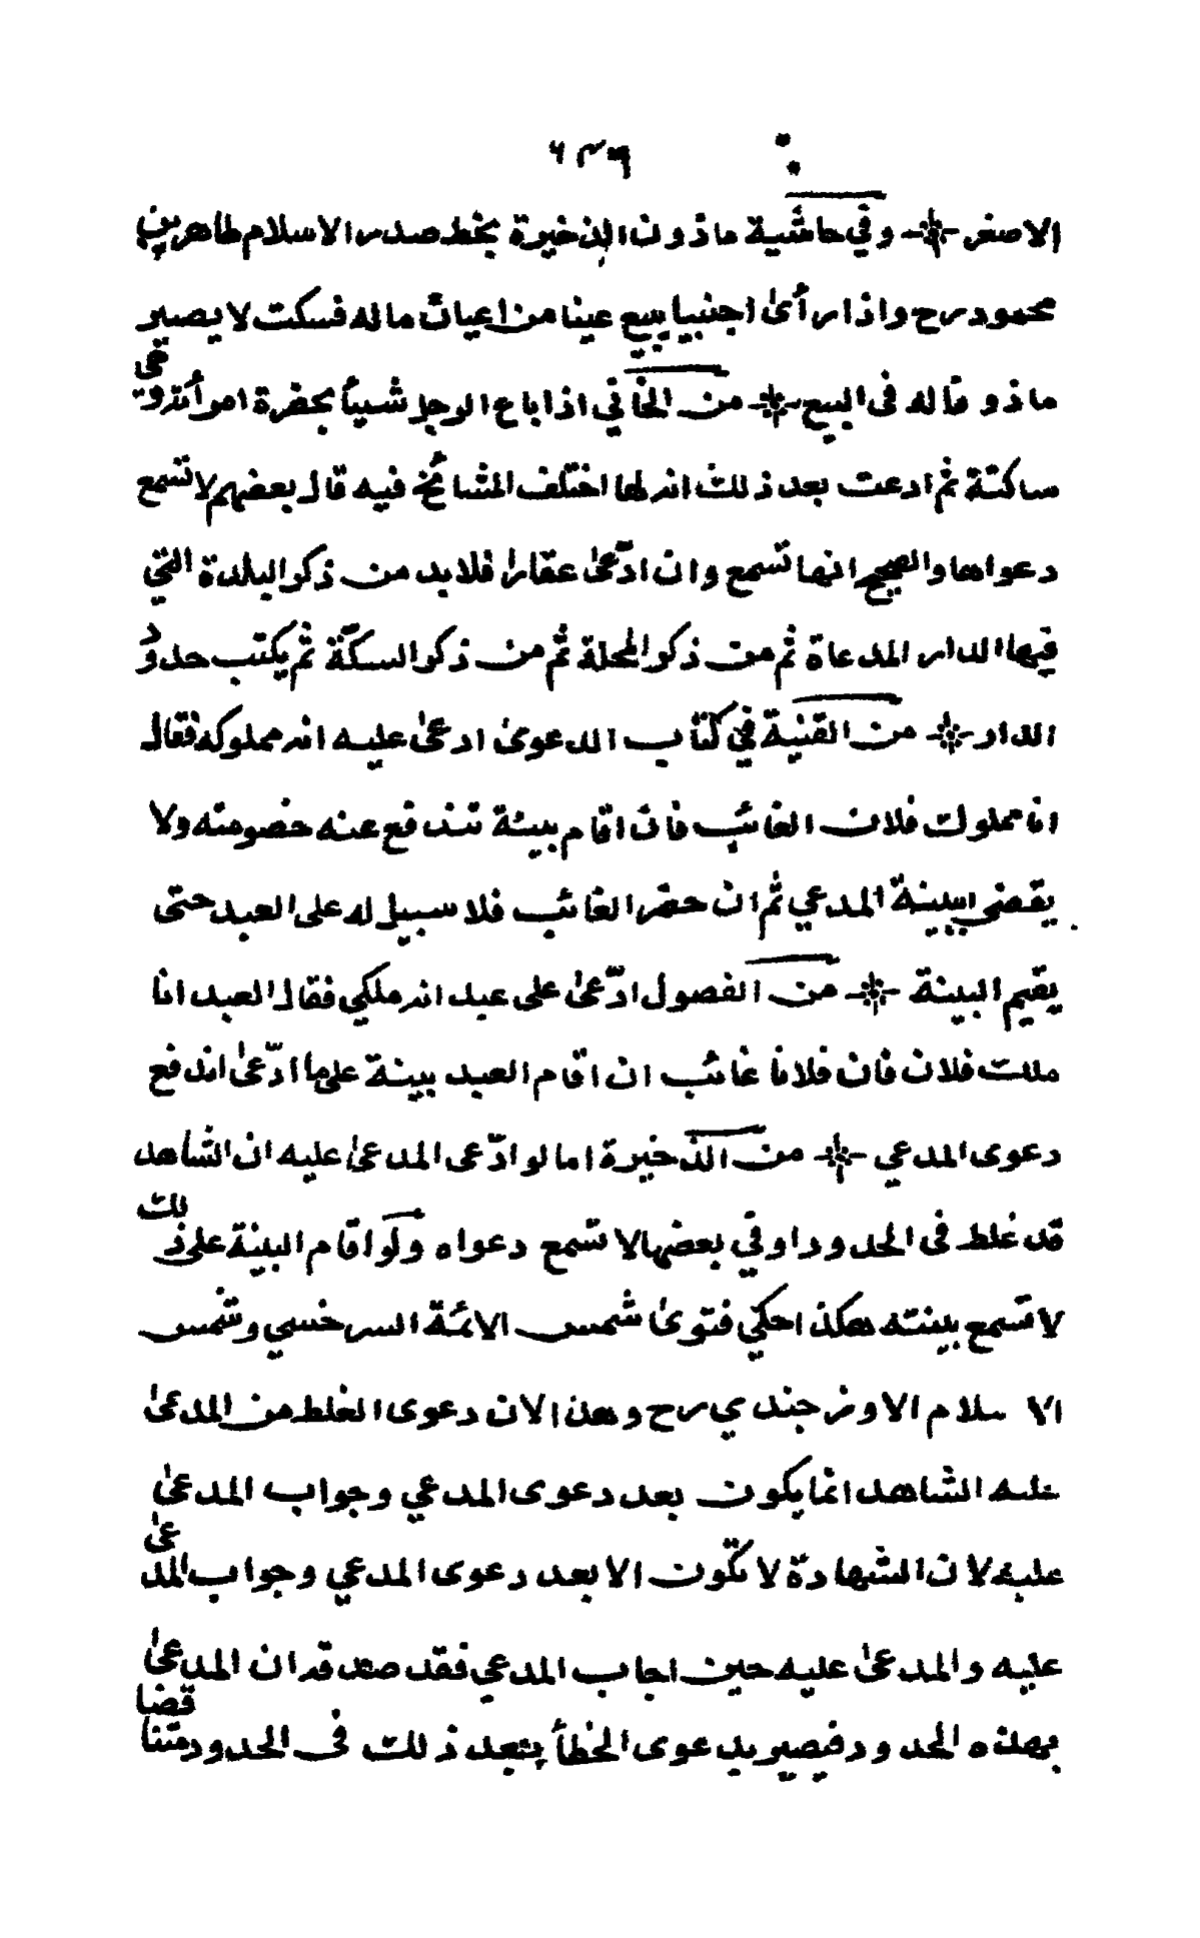 ٦٣٩
الاصغر وفي حاشية ماذون الذخيرة بخط صدر الاسلام طاهر بن
محمود رح واذا رأى اجنبيا يبيع عينا من اعيان ماله فسكت لا يصير
ماذونا له فى البيع من الخاني اذا باع الرجل شيئاً بحضرة امرأته وهى
ساكتة ثم ادعت بعد ذلك انه لها اختلف المشائخ فيه قال بعضهم لا تسمع
دعواها والصحيح انها تسمع وان ادّعىٰ عقارا فلابد من ذكر البلدة التي
فيها الدار المدعاة ثم من ذكر المحلة ثم من ذكر السكّة ثم يكتب حدود
الدار من القنية في كتاب الدعوىٰ ادعىٰ عليه انه مملوكه فقال
انا مملوك فلان الغائب فان اقام بينة تندفع عنه خصومته ولا
يقضى ببينة المدعي ثم ان حضر الغائب فلا سبيل له على العبد حتى
يقيم البينة من الفصول ادّعىٰ على عبد انه ملكي فقال العبد انا
ملك فلان فان فلانا غائب ان اقام العبد بينة على ما ادّعىٰ اندفع
دعوى المدعي من الذخيرة اما لو ادّعى المدعىٰ عليه ان الشاهد
قد غلط فى الحدود او في بعضها لا تسمع دعواه ولو اقام البينة على ذلك
لا تسمع بينته هكذا حكي فتوىٰ شمس الائمة السرخسي وشمس
الاسلام الاوزجندي رح وهذا لان دعوى الغلط من المدعىٰ
عليه الشاهد انما يكون بعد دعوى المدعي وجواب المدعىٰ
عليه لان الشهادة لا تكون الا بعد دعوى المدعي وجواب المدعىٰ
عليه والمدعىٰ عليه حين اجاب المدعي فقد صدقه ان المدعىٰ
بهذه الحدود فيصير بدعوى الخطأ بعد ذلك فى الحدود متناقضا